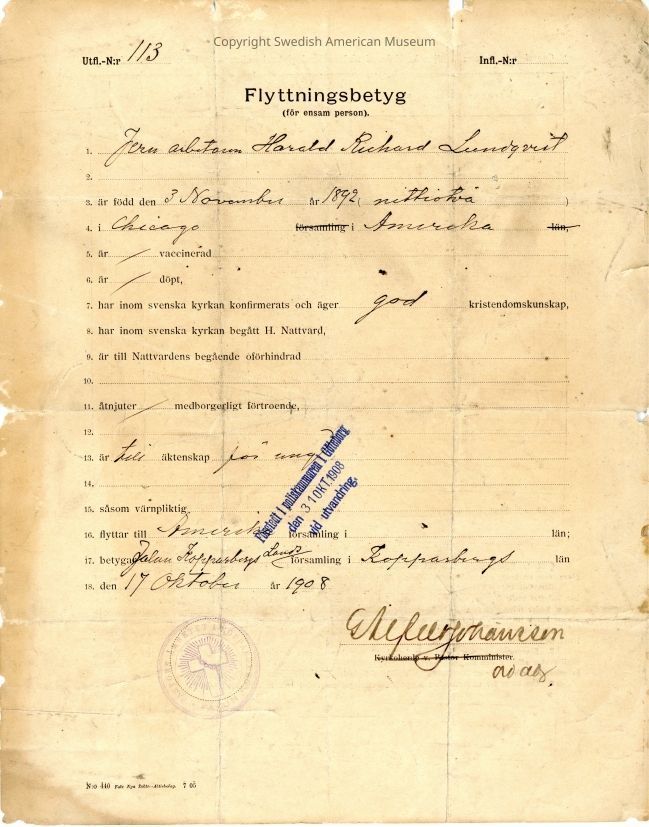 Copyright Swedish American Museum
Utfl.-N:r 113 Infl.-N:r
Flyttningsbetyg
(för ensam person).
1. Jern Harald Richard Lundqvist
2.
3. är född den 3 November år 1892 (nittiotvå)
4. i Chicago församling i Amerika län,
5. är / vaccinerad
6. är / döpt,
7. har inom svenska kyrkan konfirmerats och äger god kristendomskunskap,
8. har inom svenska kyrkan begått H. Nattvard,
9. är till Nattvardens begående oförhindrad
10.
11. åtnjuter / medborgerligt förtroende,
12.
13. är till äktenskap för ung
14.
15. såsom värnpliktig
16. flyttar till Amerika församling i län;
17. betygar Falun Kopparbergs Lands församling i Kopparbergs län
18. den 17 Oktober år 1908
i poliskammaren i Göteborg
den 31 OKT. 1908
vid utvandring.
Johansson
Kyrkoherde v. Pastor Komminister.
N:o 440 Falu Nya Boktr.-Aktiebolag. 7 05